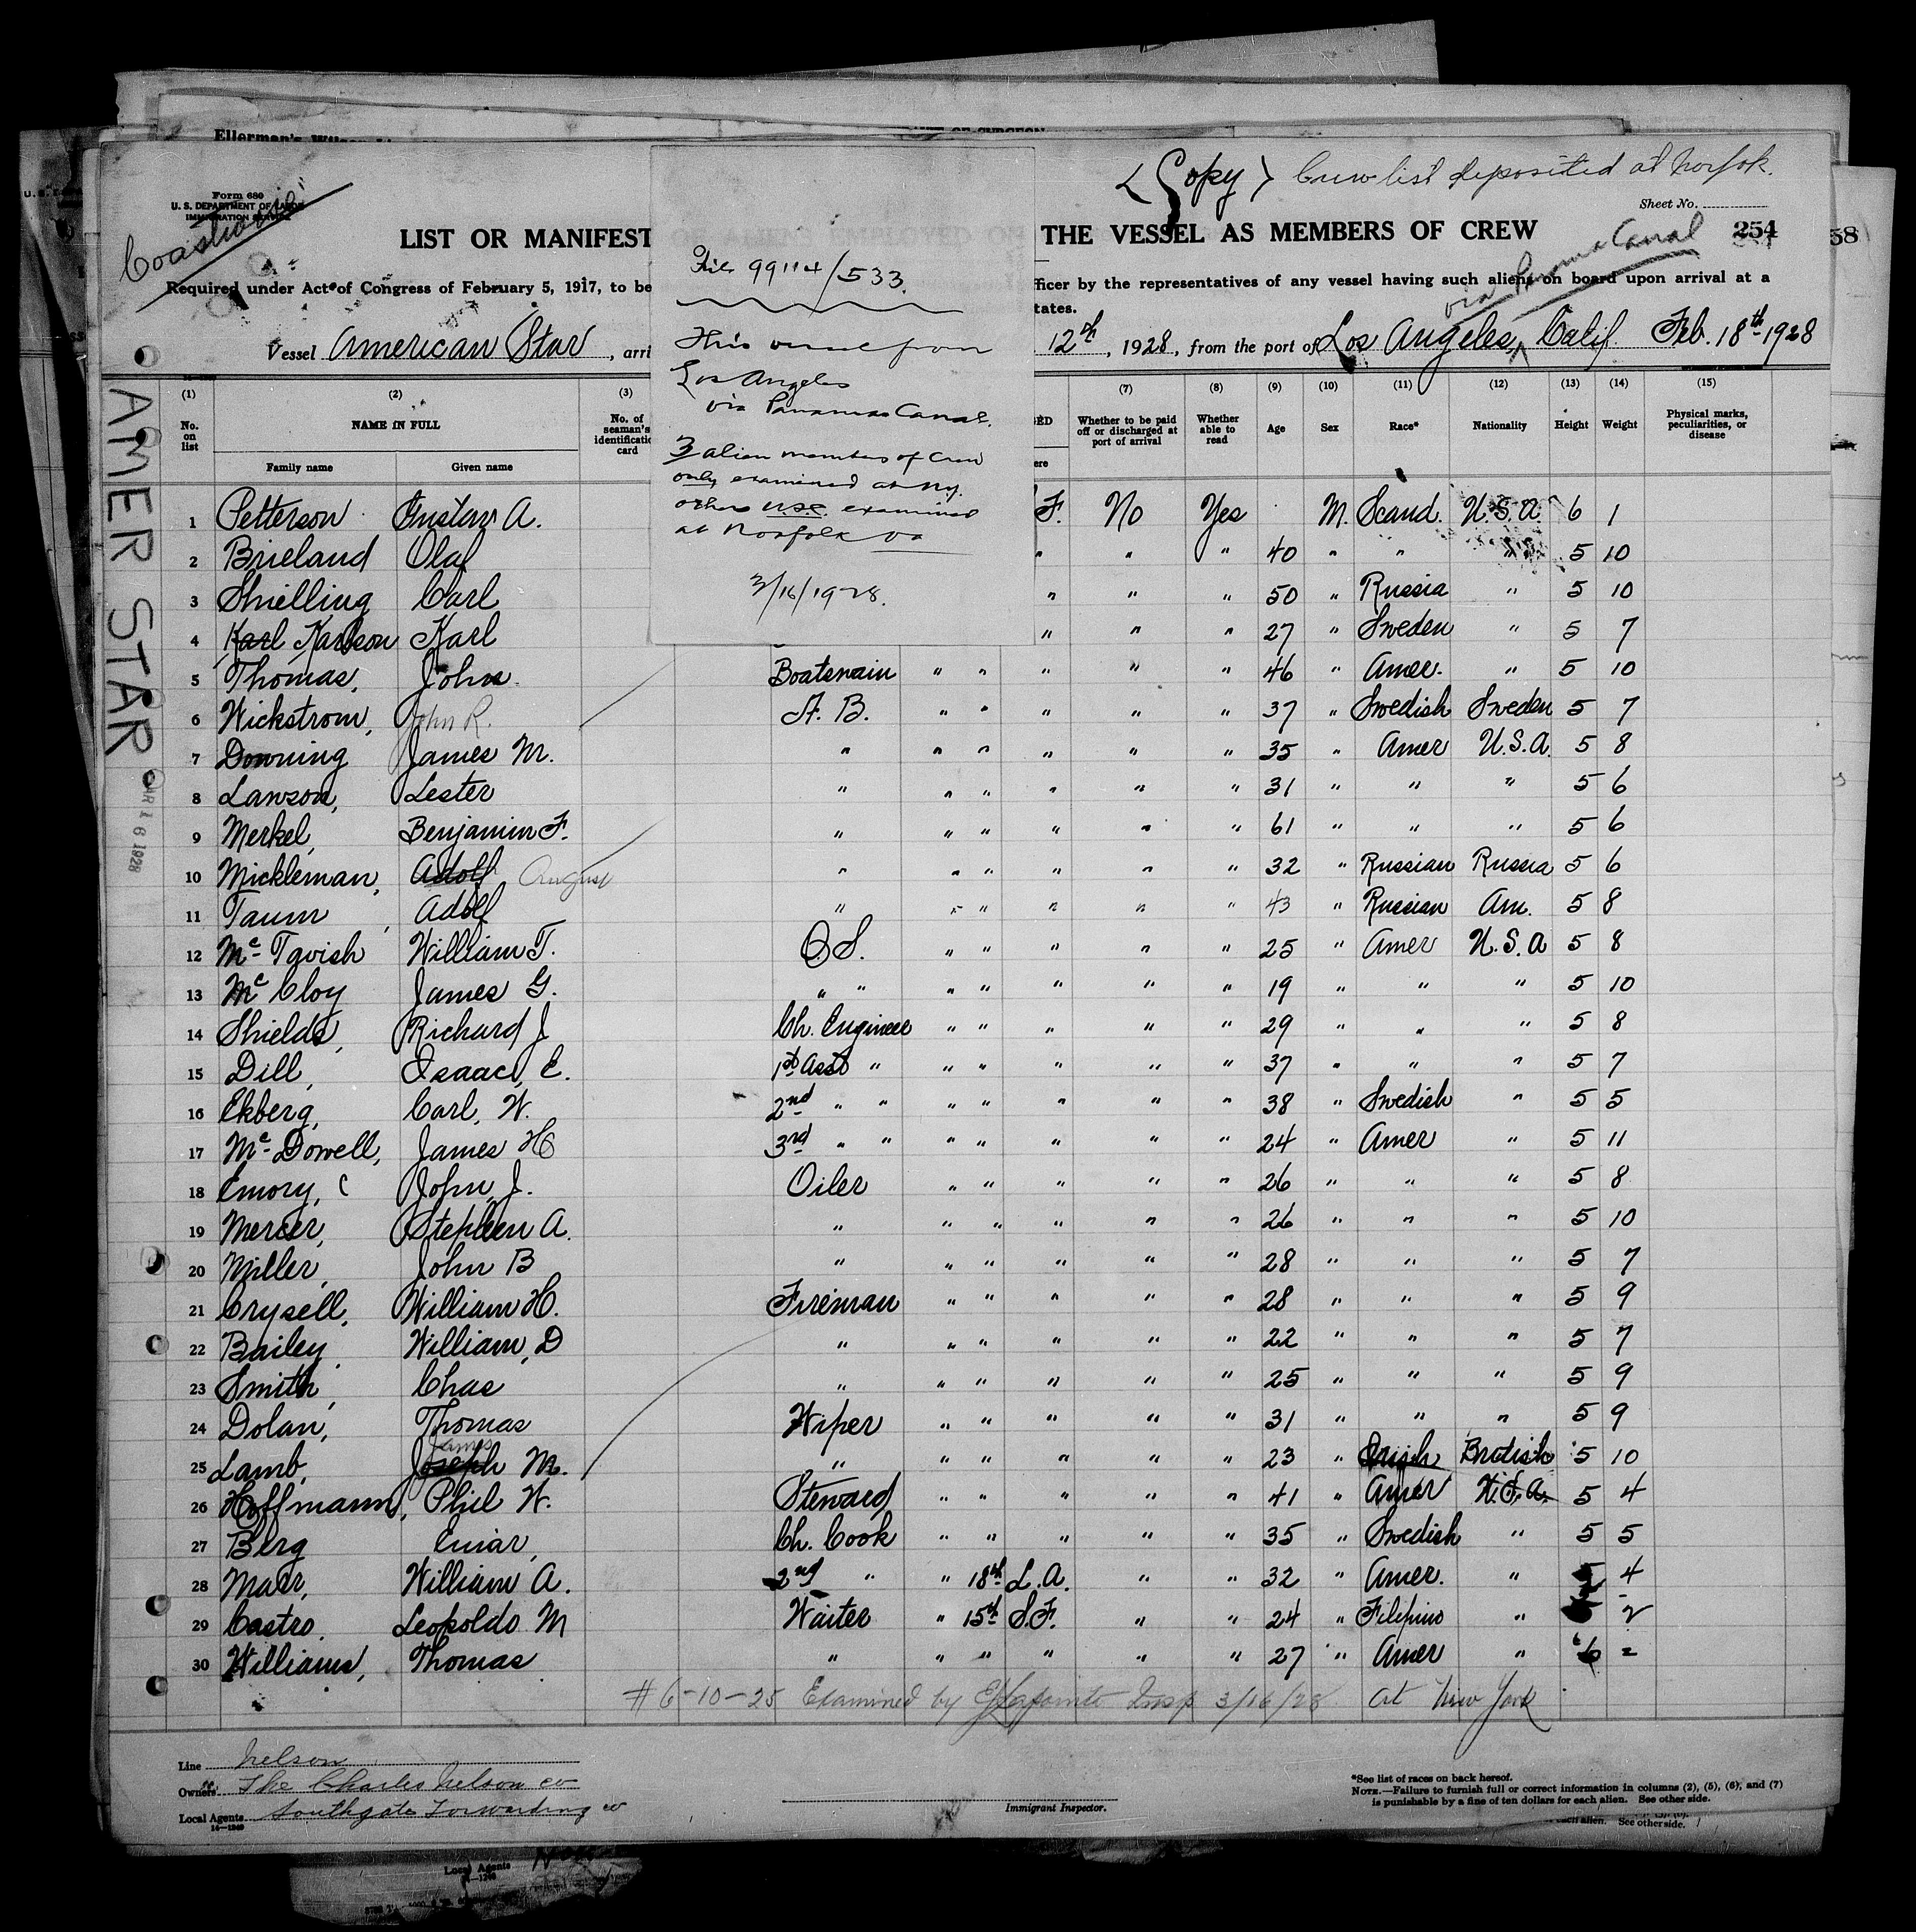 Ellerman's Wilson
<Copy> Crew list deposited at Norfok.
Form 680
U. S. DEPARTMENT OF LABOR
IMMIGRATION SERVICE
Coastwise
Sheet No.
LIST OR MANIFEST OF ALIENS EMPLOYED ON THE VESSEL AS MEMBERS OF CREW
254
58
via Panama Canal
Required under Act of Congress of February 5, 1917, to be
fficer by the representatives of any vessel having such aliens on board upon arrival at a
tates.
Vessel American Star, arri
12th, 1928, from the port of Los Angeles, Calif. Feb. 18th 1928
File 99114/533.
This vessel from
Los Angeles
via Panama Canal.
3 alien members of Crew
only examined at N.Y.
others U.S.C. examined
at Norfolk Va
3/16/1928.
AMER STAR
MAR 16 1928
(1) (2) (3) (7) (8) (9) (10) (11) (12) (13) (14) (15)
No. on list
NAME IN FULL
Family name Given name
No. of seaman's identificatio card
ED
ere
Whether to be paid off or discharged at port of arrival
Whether able to read
Age Sex Race* Nationality Height Weight
Physical marks, peculiarities, or disease
1 Petterson Gustav A. F. No Yes M. Scand. U.S.A. 6 1
2 Brieland Olaf " " " 40 " " " 5 10
3 Shielling Carl " " " 50 " Russia " 5 10
4 Karl Karlson Karl " " " 27 " Sweden " 5 7
5 Thomas, John Boatswain " " " " " 46 " Amer. " 5 10
6 Wickstrom, John R. A. B. " " " " " 37 " Swedish Sweden 5 7
7 Downing James M. " " " " " " 35 " Amer U.S.A. 5 8
8 Lawson, Lester " " " " " " 31 " " " 5 6
9 Merkel, Benjamin F. " " " " " " 61 " " " 5 6
10 Mickleman, Adolf August " " " " " " 32 " Russian Russia 5 6
11 Taum, Adolf " " " " " " 43 " Russian Am. 5 8
12 Mc Tavish William T. O.S. " " " " " 25 " Amer U.S.A 5 8
13 Mc Cloy James G. " " " " " " " 19 " " " 5 10
14 Shields, Richard J Ch. Engineer " " " " " 29 " " " 5 8
15 Dill, Isaac, E. 1st Asst " " " " " " 37 " " " 5 7
16 Ekberg, Carl, W. 2nd " " " " " " " 38 " Swedish " 5 5
17 Mc Dowell, James H 3rd " " " " " " " 24 " Amer " 5 11
18 Emory, C John, J. Oiler " " " " " 26 " " " 5 8
19 Mercer, Stephen A. " " " " " " 26 " " " 5 10
20 Miller, John B " " " " " " 28 " " " 5 7
21 Crysell, William H. Fireman " " " " " 28 " " " 5 9
22 Bailey, William, D " " " " " " 22 " " " 5 7
23 Smith, Chas " " " " " " 25 " " " 5 9
24 Dolan, Thomas Wiper " " " " " 31 " " " 5 9
James
25 Lamb, Joseph M. " " " " " " 23 " Irish British 5 10
26 Hoffmann, Phil W. Steward " " " " " 41 " Amer U.S.A. 5 4
27 Berg Einar, Ch. Cook " " " " " 35 " Swedish " 5 5
28 Marr, William A. 2nd " " 18th L.A. " " 32 " Amer. " 5 4
29 Castro, Leopoldo M Waiter " 15th S.F. " " 24 " Filipino " 2
30 Williams, Thomas " " " " " " 27 " Amer " 6 2
# 6-10-25 Examined by Insp 3/16/28 at New York
Line Nelson
Owners The Charles Nelson co
Local Agents Southgate Forwarding co
14—1240
Immigrant Inspector.
*See list of races on back hereof.
NOTE.—Failure to furnish full or correct information in columns (2), (5), (6), and (7)
is punishable by a fine of ten dollars for each alien. See other side.
each alien. See other side.
Local Agents
14—1240